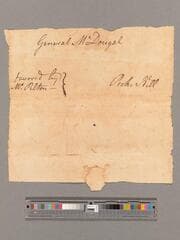 General McDougel
Favored by
Mr. Pelton
Peeks Kill